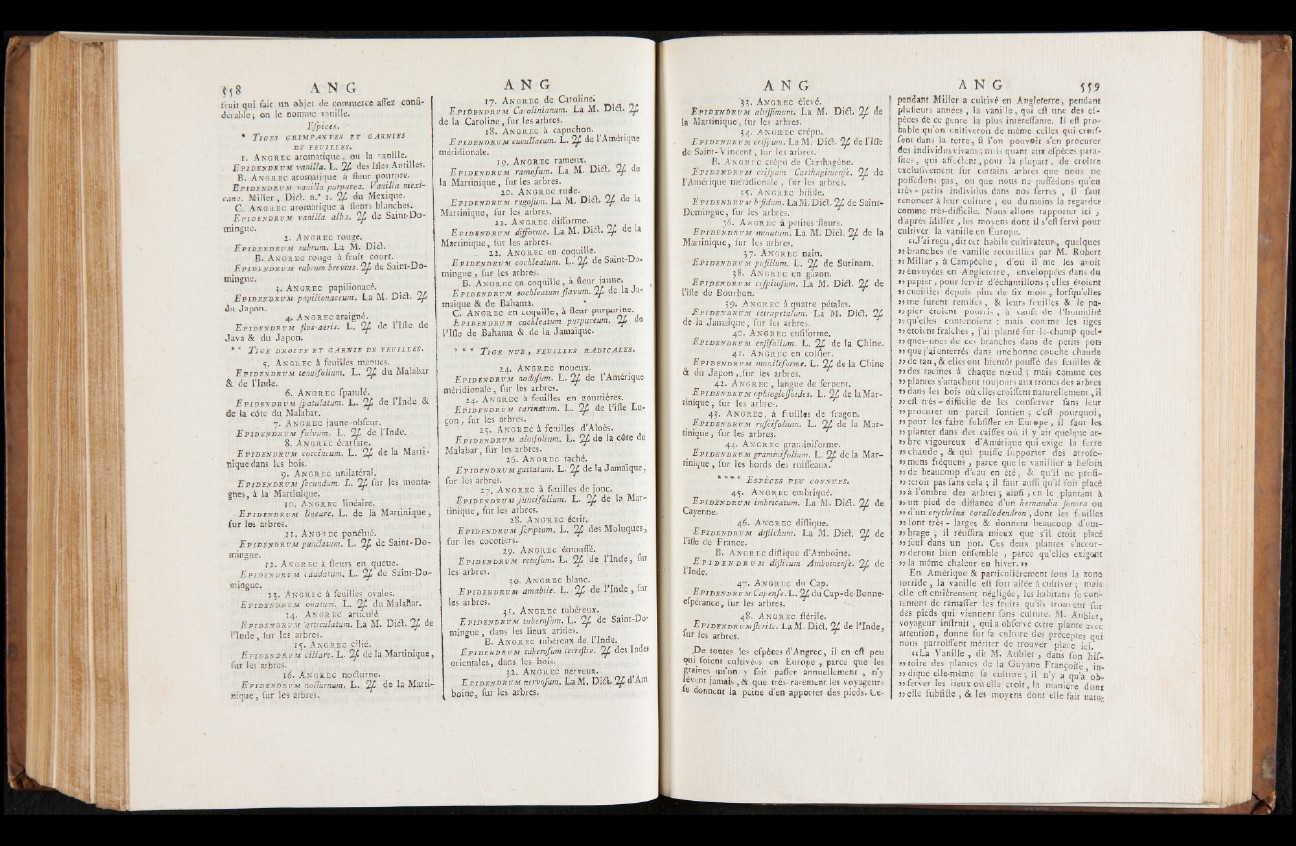 558 ANG
fruit qui fait un objet de commerce aſſez conſi-
dérable; on le nomme vanille.
Eſpèces.
* TIGES GRIMPANTES ET GARNIES
DE FEUILLES.
1. ANGREC aromatique, ou la vanille.
EPIDENDRUM vanilla. L. ♃ des Iſles Antilles.
B. ANGREC aromatique à fleur pourpre.
EPIDENDRUM vanilla purpurea. Vanilla mexi-
cana. Miller, Dict. n.° 1. ♃ du Mexique.
C. ANGREC aromatique à fleurs blanches.
EPIDENDRUM vanilla alba. ♃ de Saint-Do-
mingue.
2. ANGREC rouge.
EPIDENDRUM rubrum. La M. Dict.
B. ANGREC rouge à fruit court.
EPIDENDRUM rubrum brevius. ♃ de Saint-Do-
mingue.
3. ANGREC papilionacé.
EPIDENDRUM papilionaceum. La M. Dict. ♃
du Japon.
4. ANGREC araigné.
EPIDENDRUM flos-aeris. L. ♃ de l'Iſle de
Java & du Japon.
** TIGE DROITE ET GARNIE DE FEUILLES.
5. ANGREC à feuilles menues.
EPIDENDRUM tenuifolium. L. ♃ du Malabar
& de l'Inde.
6. ANGREC ſpatulé.
EPIDENDRUM ſpatulatum. L. ♃ de l'Inde &
de la côte du Malabar.
7. ANGREC jaune-obſcur.
EPIDENDRUM fulvum. L. ♃ de l'Inde.
8. ANGREC écarlate.
EPIDENDRUM coccineum. L. ♃ de la Marti-
nique dans les bois.
9. ANGREC unilatéral.
EPIDENDRUM ſecundum. L. ♃ ſur les monta-
gnes, à la Martinique.
10. ANGREC linéaire.
EPIDENDRUM lineare. L. de la Martinique,
ſur les arbres.
11. ANGREC ponctué.
EPIDENDRUM punctatum. L. ♃ de Saint-Do-
mingue.
12. ANGREC à fleurs en queue.
EPIDENDRUM caudatum. L. ♃ de Saint-Do-
mingue.
13. ANGREC à feuilles ovales.
EPIDENDRUM ovatum. L. ♃ du Malabar.
14. ANGREC articulé
EPIDENDRUM articulatum. La M. Dict. ♃ de
l'Inde, ſur les arbres.
15. ANGREC cilié.
EPIDENDRUM ciliare. L. ♃ de la Martinique,
ſur les arbres.
16. ANGREC nocturne.
EPIDENDRUM nocturnum. L. ♃ de la Marti-
nique, ſur les arbres.
ANG
17. ANGREC de Caroline.
EPIDENDRUM Carolinianum. La M. Dict. ♃
de la Caroline, ſur les arbres.
18. ANGREC à capuchon.
EPIDENDRUM cucullatum. L. ♃ de l'Amérique
méridionale.
19. ANGREC rameux.
EPIDENDRUM ramoſum. La M. Dict. ♃ de
la Martinique, ſur les arbres.
20. ANGREC rude.
EPIDENDRUM rugoſum. La M. Dict. ♃ de la
Martinique, ſur les arbres.
21. ANGREC difforme.
EPIDENDRUM difforme. La M. Dict. ♃ de la
Martinique, ſur les arbres.
22. ANGREC en coquille.
EPIDENDRUM cochleatum. L. ♃ de Saint-Do-
mingue, ſur les arbres.
B. ANGREC en coquille, à fleur jaune.
EPIDENDRUM cochleatum flavum. ♃ de la Ja-
maïque & de Bahama.
C. ANGREC en coquille, à fleur purpurine.
EPIDENDRUM cochleatum purpureum. ♃ de
l'Iſle de Bahama & de la Jamaïque.
*** TIGE NUE, FEUILLES RADICALES.
24. ANGREC noueux.
EPIDENDRUM nodoſum. L. ♃ de l'Amérique
méridionale, ſur les arbres.
24. ANGREC à feuilles en gouttières.
EPIDENDRUM carinatum. L. ♃ de l'iſle Lu-
çon, ſur les arbres.
25. ANGREC à feuilles d'Aloès.
EPIDENDRUM aloifolium. L. ♃ de la côte de
Malabar, ſur les arbres.
26. ANGREC taché.
EPIDENDRUM guttatum. L. ♃ de la Jamaïque,
ſur les arbres.
27. ANGREC à feuilles de jonc.
EPIDENDRUM juncifolium. L. ♃ de la Mar-
tinique, ſur les arbres.
28. ANGREC écrit.
EPIDENDRUM ſcriptum. L. ♃ des Moluques,
ſur les cocotiers.
29. ANGREC émouſſé.
EPIDENDRUM retuſum. L. ♃ de l'Inde, ſur
les arbres.
30. ANGREC blanc.
EPIDENDRUM amabile. L. ♃ de l'Inde, ſur
les arbres.
31. ANGREC tubéreux.
EPIDENDRUM tuberoſum. L. ♃ de Saint-Do-
mingue, dans les lieux arides.
B. ANGREC tubéreux de l'Inde.
EPIDENDRUM tuberoſum terreſtre. ♃ des Indes
orientales, dans les bois.
32. ANGREC nerveux.
EPIDENDRUM nervoſum. La M. Dict. ♃ d'Am
boine, ſur les arbres.
ANG
33. ANGREC élevé.
EPIDENDRUM altiſſimum. La M. Dict. ♃ de
la Martinique, ſur les arbres.
34. ANGREC crépu.
EPIDENDRUM criſpum. La M. Dict. ♃ de l'Iſle
de Saint-Vincent, ſur les arbres.
B. ANGREC crépu de Carthagène.
EPIDENDRUM criſpum Carthaginenſe. ♃ de
l'Amérique méridionale, ſur les arbres.
35. ANGREC bifide.
EPIDENDRUM bifidum. La M. Dict. ♃ de Saint-
Domingue, ſur les arbres.
36. ANGREC à petites fleurs.
EPIDENDRUM minutum. La M. Dict. ♃ de la
Martinique, ſur les arbres.
37. ANGREC nain.
EPIDENDRUM puſillum. L. ♃ de Surinam.
38. ANGREC en gazon.
EPIDENDRUM ceſpitoſum. La M. Dict. ♃ de
l'iſle de Bourbon.
39. ANGREC à quatre pétales.
EPIDENDRUM tetrapetalum. La M. Dict. ♃
de la Jamaïque, ſur les arbres.
40. ANGREC enſiforme.
EPIDENDRUM enſifolium. L. ♃ de la Chine.
41. ANGREC en collier.
EPIDENDRUM moniliforme. L. ♃ de la Chine
& du Japon, ſur les arbres.
42. ANGREC, langue de ſerpent.
EPIDENDRUM ophiogloſſoides. L. ♃ de la Mar-
tinique, ſur les arbres.
43. ANGREC, à feuilles de fragon.
EPIDENDRUM ruſcifolium. L. ♃ de la Mar-
tinique, ſur les arbres.
44. ANGREC graminiforme.
EPIDENDRUM graminifolium. L. ♃ de la Mar-
tinique, ſur les bords des ruiſſeaux.
**** ESPÈCES PEU CONNUES.
45. ANGREC embriqué.
EPIDENDRUM imbricatum. La M. Dict. ♃ de
Cayenne.
46. ANGREC diſtique.
EPIDENDRUM diſtichum. La M. Dict. ♃ de
l'iſle de France.
B. ANGREC diſtique d'Amboine.
EPIDENDRUM diſticum Amboinenſe. ♃ de
l'Inde.
47. ANGREC du Cap.
EPIDENDRUM Capenſe. L. ♃ du Cap-de-Bonne-
eſpérance, ſur les arbres.
48. ANGREC ſtérile.
EPIDENDRUM ſterile. La M. Dict. ♃ de l'Inde,
ſur les arbres.
De toutes les eſpèces d'Angrec, il en eſt peu
qui ſoient cultivées en Europe, parce que les
graines qu'on y fait paſſer annuellement, n'y
lèvent jamais, & que très-rarement les voyageurs
ſe donnent la peine d'en apporter des pieds. Ce-
ANG 559
pendant Miller a cultivé en Angleterre, pendant
pluſieurs années, la vanille, qui eſt une des eſ-
pèces de ce genre la plus intéreſſante. Il eſt pro-
bable qu'on cultiveroit de même celles qui croiſ-
ſent dans la terre, ſi l'on pouvoit s'en procurer
des individus vivans; mais quant aux eſpèces para-
ſites, qui affectent, pour la plupart, de croître
excluſivement ſur certains arbres que nous ne
poſſédons pas, ou que nous ne poſſédons qu'en
très-petits individus dans nos ſerres, il faut
renoncer à leur culture, ou du moins la regarder
comme très-difficile. Nous allons rapporter ici,
d'après Miller, les moyens dont il s'eſt ſervi pour
cultiver la vanille en Europe.
«J'ai reçu, dit cet habile cultivateur, quelques
»branches de vanille recueillies par M. Robert
»Millar, à Campêche, d'où il me les avoit
»envoyées en Angleterre, enveloppées dans du
»papier, pour ſervir d'échantillons; elles étoient
»cueillies depuis plus de ſix mois, lorſqu'elles
»me furent remiſes, & leurs feuilles & le pa-
»pier étoient pourris, à cauſe de l'humidité
»qu'elles contenoient; mais comme les tiges
»étoient fraîches, j'ai planté ſur le-champ quel-
»ques-unes de ces branches dans de petits pots
»que j'ai enterrés dans une bonne couche chaude
»de tan, & elles ont bientôt pouſſé des feuilles &
»des racines à chaque nœud; mais comme ces
»plantes s'attachent toujours aux troncs des arbres
»dans les bois où elles croiſſent naturellement, il
»eſt très-difficile de les conſerver ſans leur
»procurer un pareil ſoutien; c'eſt pourquoi,
»pour les faire ſubſiſter en Europe, il faut les
»planter dans des caiſſes où il y ait quelque ar-
»bre vigoureux d'Amérique qui exige la ſerre
»chaude, & qui puiſſe ſupporter des arroſe-
»mens fréquens, parce que le vanillier a beſoin
»de beaucoup d'eau en été, & qu'il ne profi-
»teroit pas ſans cela; il faut auſſi qu'il ſoit placé
»à l'ombre des arbres; ainſi, en le plantant à
»un pied de diſtance d'un hernandia ſonora ou
»d'un erythrina corallodendron, dont les feuilles
»ſont très-larges & donnent beaucoup d'om-
»brage, il réuſſira mieux que s'il étoit placé
»ſeul dans un pot. Ces deux plantes s'accor-
»deront bien enſemble, parce qu'elles exigent
»la même chaleur en hiver.»
En Amérique & particulièrement ſous la zone
torride, la vanille eſt fort aiſée à cultiver; mais
elle eſt entièrement négligée, les habitans ſe con-
tentent de ramaſſer les fruits qu'ils trouvent ſur
des pieds qui viennent ſans culture. M. Aublet,
voyageur inſtruit, qui a obſervé cette plante avec
attention, donne ſur ſa culture des préceptes qui
nous paroiſſent mériter de trouver place ici.
«La Vanille, dit M. Aublet, dans ſon hiſ-
»toire des plantes de la Guyane Françoiſe, in-
»dique elle-même ſa culture; il n'y a qu'à ob-
»ſerver les lieux où elle croît, la manière dont
»elle ſubſiſte, & les moyens dont elle fait